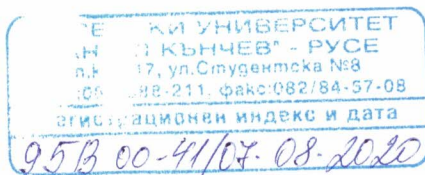 КИ УНИВЕРСИТЕТ
КЪНЧЕВ" - РУСЕ
17, ул.Студентска №8
88-211, факс:082/84-57-08
ационен индекс и дата
95В 00-41/07.08.2020